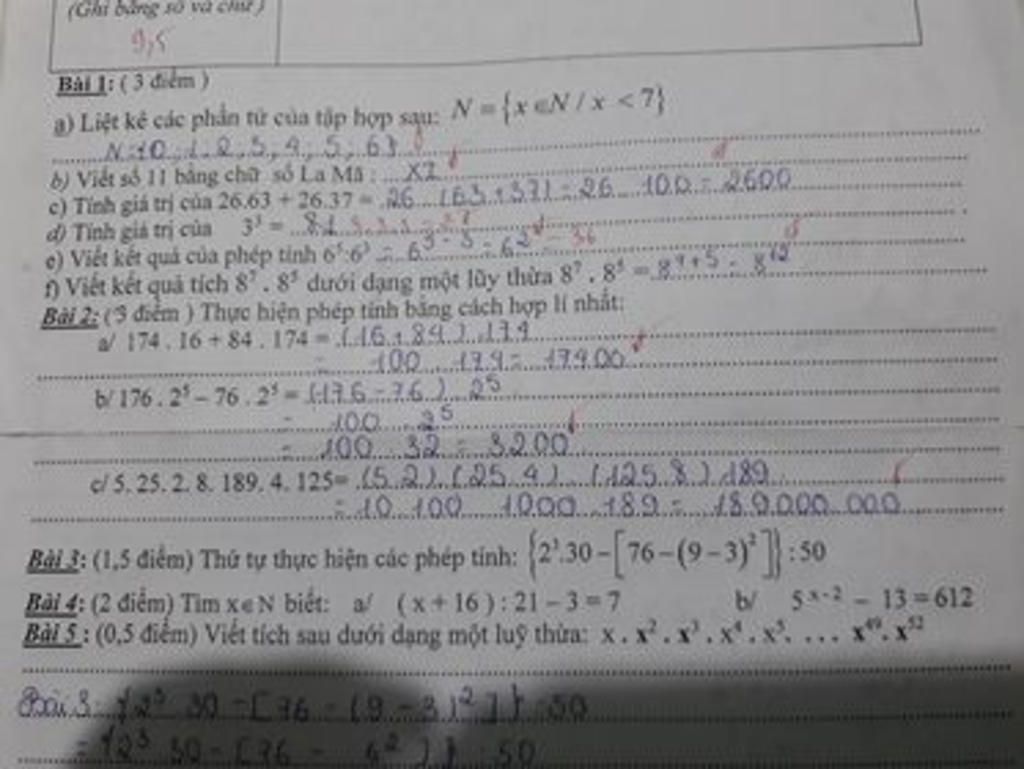 (Ghi bằng số và chữ)
9,5
Bài 1: ( 3 điểm )
a) Liệt kê các phần tử của tập hợp sau: N = {x ∈ N / x < 7}
N = {0 ; 1, 2, 3, 4 ; 5, 6}
b) Viết số 11 bằng chữ số La Mã : XI
c) Tính giá trị của 26.63 + 26.37 = 26 (63 + 37) = 26 . 100 = 2600
d) Tính giá trị của 3³ = 81 3.3.3 = 27
e) Viết kết quả của phép tính 6⁵:6³ = 6⁵⁻³ = 6² = 36
f) Viết kết quả tích 8⁷ . 8⁵ dưới dạng một lũy thừa 8⁷ . 8⁵ = 8⁷⁺⁵ = 8¹²
Bài 2: (3 điểm ) Thực hiện phép tính bằng cách hợp lí nhất:
a/ 174 . 16 + 84 . 174 = (16 + 84) . 174
= 100 . 174 = 17400
b/ 176 . 2⁵ – 76 . 2⁵ = (176 - 76) . 2⁵
= 100 . 2⁵
= 100 . 32 = 3200
c/ 5. 25. 2. 8. 189. 4. 125= (5.2) . (25.4) . (125.8) . 189
= 10 . 100 . 1000 . 189 = 189.000.000
Bài 3: (1,5 điểm) Thứ tự thực hiện các phép tính: {2³.30 – [76 – (9 – 3)²]} : 50
Bài 4: (2 điểm) Tìm x ∈ N biết: a/ ( x + 16 ) : 21 – 3 = 7 b/ 5ˣ⁻² – 13 = 612
Bài 5 : (0,5 điểm) Viết tích sau dưới dạng một luỹ thừa: x . x² . x³ . x⁴ . x⁵. … x⁴⁹. x⁵²
Bài 3: {2³ . 30 - [76 - (9 - 3)²]} : 50
= {2³ . 30 - [76 - 6²]} : 50